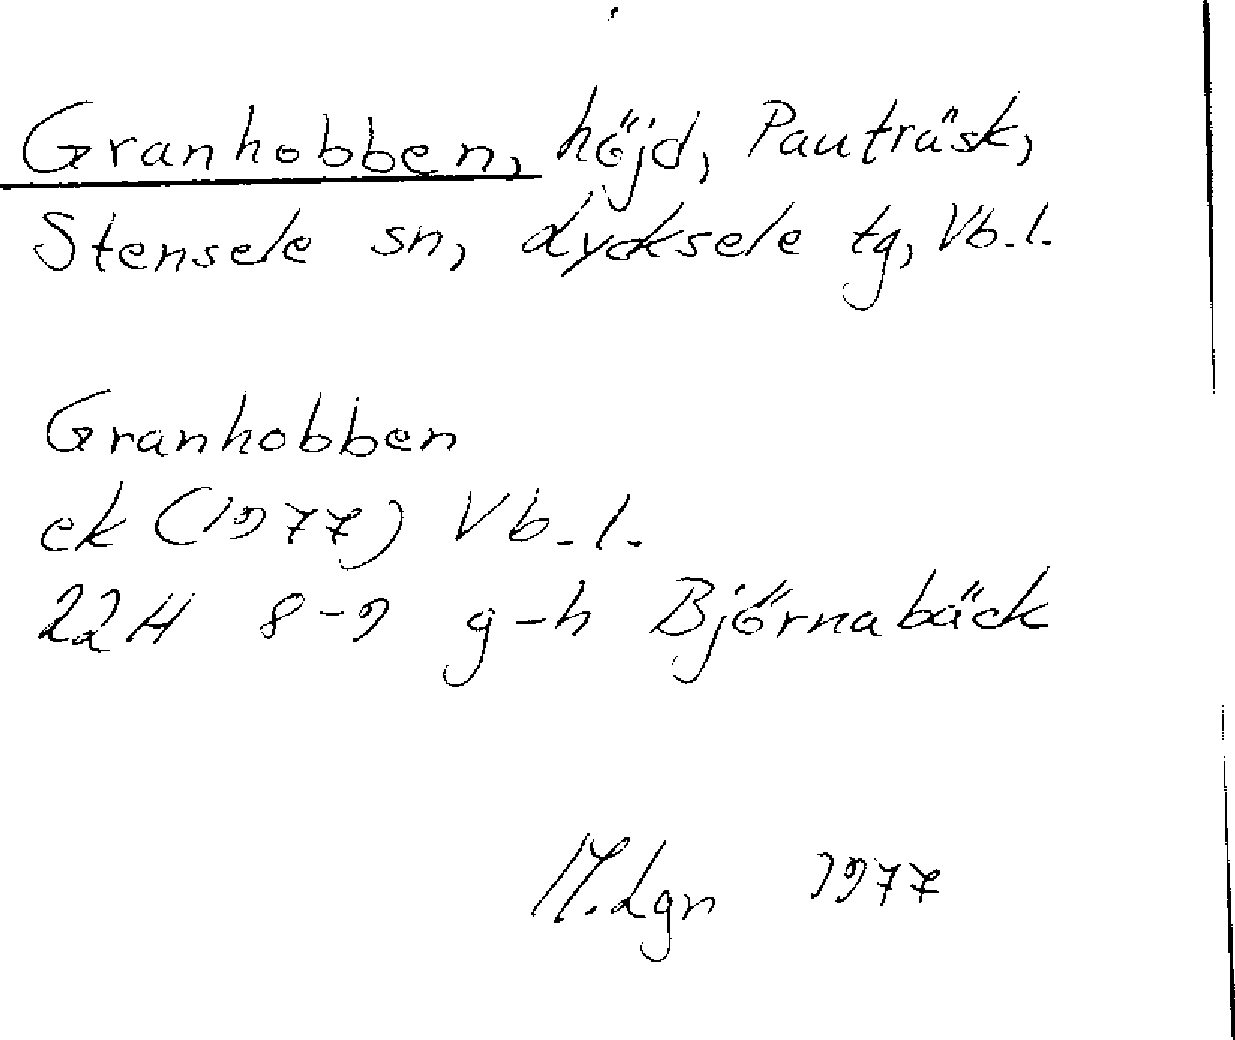 Granhobben, höjd, Pauträsk,
Stensele sn, Lycksele tg, Vb.l.
Granhobben
ek (1977) Vb.l.
22H 8-9 g-h Björnabäck
M.Lgn 1977